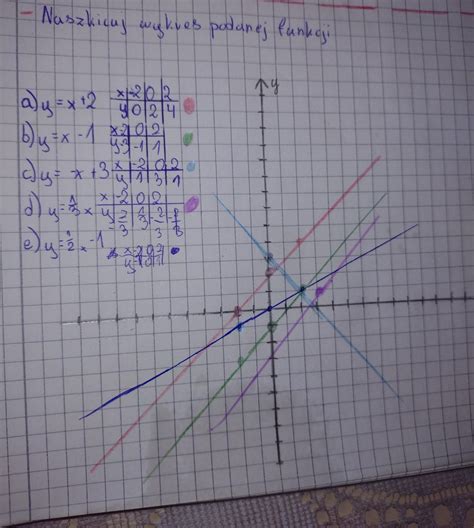 - Naszkicuj wykres podanej funkcji
y
a) y = x + 2 x -2 0 2
y 0 2 4
b) y = x - 1 x -2 0 2
y -3 -1 1
c) y = x + 3 x -2 0 2
y 1 3 1
d) y = x x -2 0 2
y
e) y = x - 1